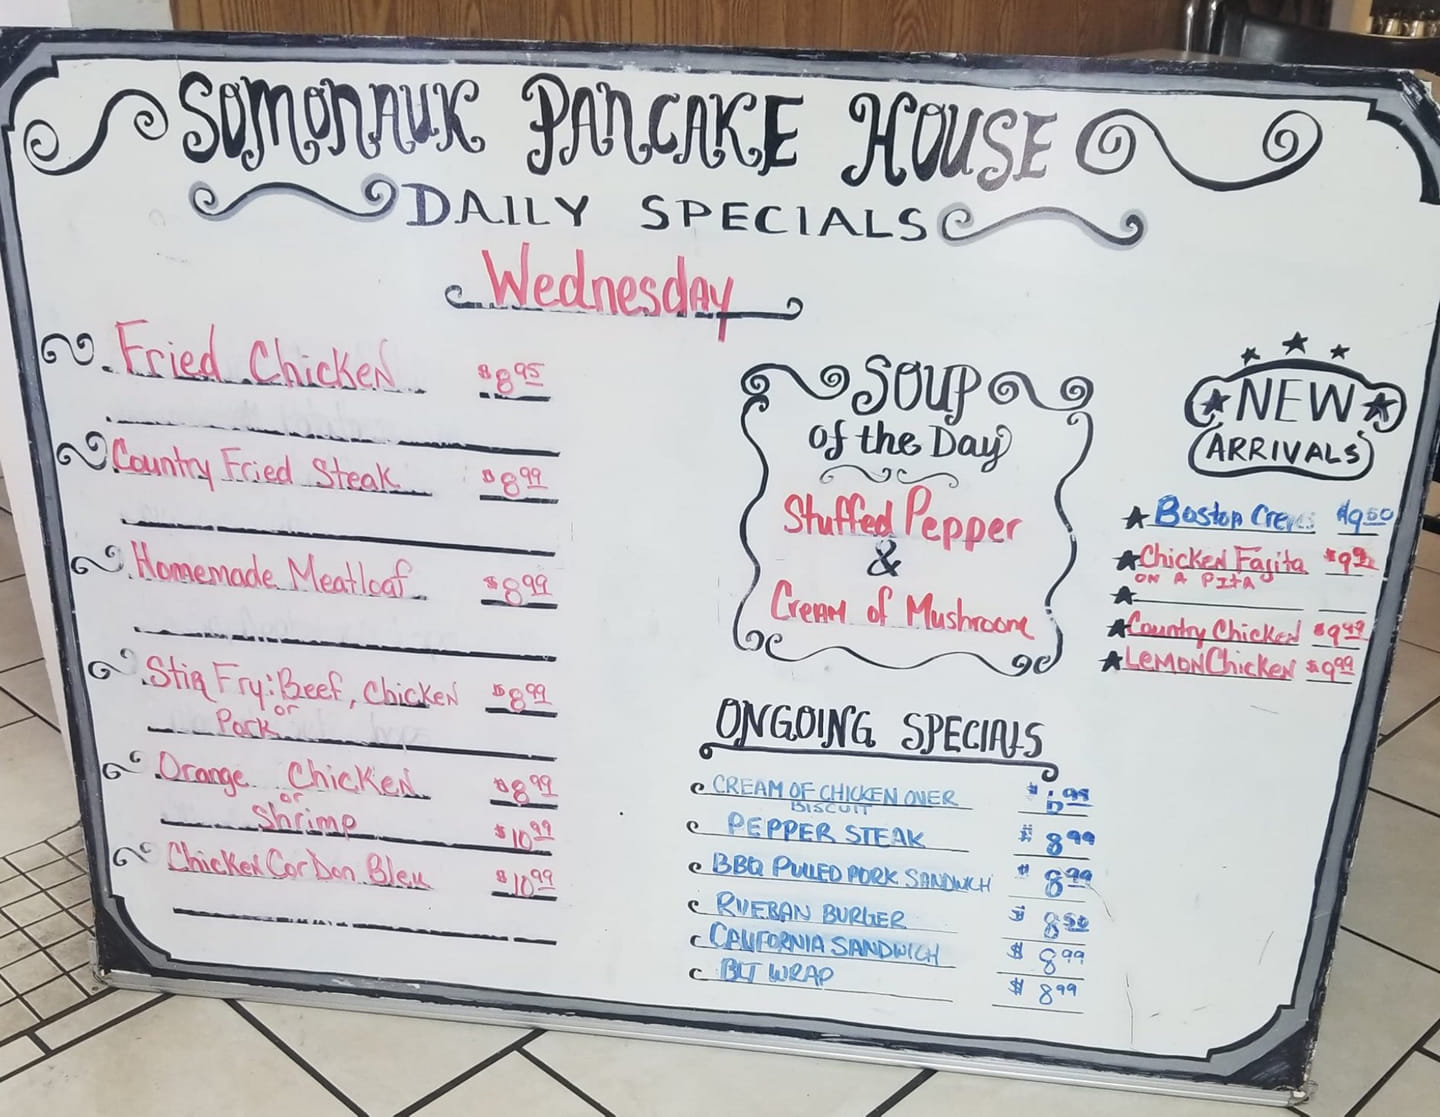 SOMONAUK PANCAKE HOUSE
DAILY SPECIALS
Wednesday
Fried Chicken $8.95
Country Fried Steak $8.99
Homemade Meatloaf $8.99
Stir Fry: Beef, Chicken $8.99
or
Pork
Orange Chicken $8.99
or
Shrimp $10.99
Chicken Cor Don Bleu $10.99
SOUP
of the Day
Stuffed Pepper
&
Cream of Mushroom
ONGOING SPECIALS
CREAM OF CHICKEN OVER
BISCUIT
PEPPER STEAK $8.99
BBQ PULLED PORK SANDWICH $8.99
RUEBAN BURGER $8.50
CALIFORNIA SANDWICH $8.99
BLT WRAP $8.99
NEW
ARRIVALS
Boston $9.50
Chicken Fajita
ON A PITA
Country Chicken $9.49
LEMON Chicken $9.99